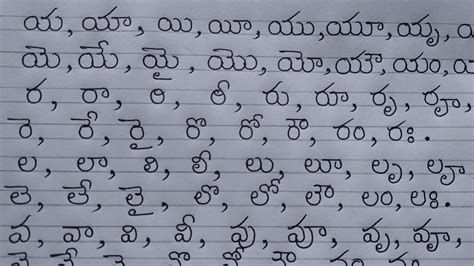 య, యా, యి, యీ, యు, యూ, యృ,
యె, యే, యై, యొ, యో, యౌ, యం,
ర, రా, రి, రీ, రు, రూ, రృ, రౄ,
రె, రే, రై, రొ, రో, రౌ, రం, రః.
ల, లా, లి, లీ, లు, లూ, లృ, లౄ
లె, లే, లై, లొ, లో, లౌ, లం, లః.
వ, వా, వి, వీ, వు, వూ, వృ, వౄ,